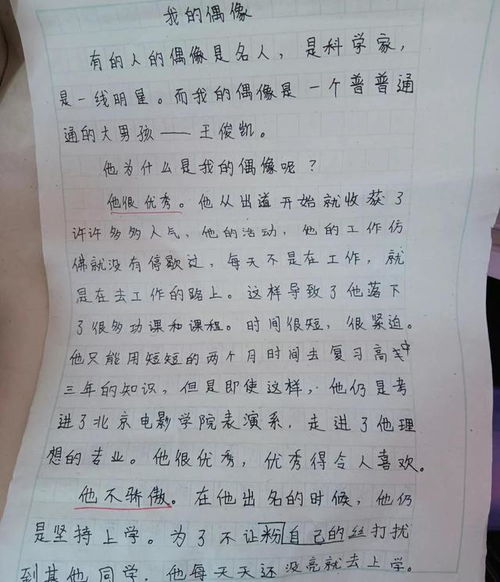 我的偶像
有的人的偶像是名人，是科学家，
是一线明星。而我的偶像是一个普普通
通的大男孩——王俊凯。
他为什么是我的偶像呢？
他很优秀。他从出道开始就收获了
许许多多人气，他的活动，他的工作仿
佛就没有停歇过，每天不是在工作，就
是在去工作的路上。这样导致了他落下
了很多功课和课程。时间很短，很紧迫。
他只能用短短的两个月时间去复习高中
三年的知识，但是即使这样，他仍是考
进了北京电影学院表演系，走进了他理
想的专业。他很优秀，优秀得令人喜欢。
他不骄傲。在他出名的时候，他仍
是坚持上学。为了不让粉自己的丝打扰
到其他同学，他每天天还没亮就去上学。